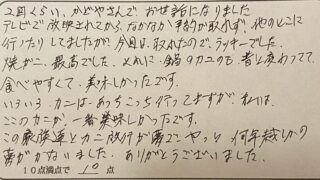 2回くらい、かどやさんで、お世話になりました
テレビで放映されてから、なかなか予約が取れず、他のとこに
行ったりしてましたが、今回は、取れたのでラッキーでした。
焼ガニ、最高でした。それに、鍋のカニも、昔と変わってて
食べやすくて、美味しかったです。
いろいろ、カニはあっちこっち行ってますが、私は、
ここのカニが、一番美味しかったです。
この豪族連とカニ旅行が夢で やっと 何年越しかの
夢がかないました。ありがとうございました。
10点満点で 10 点